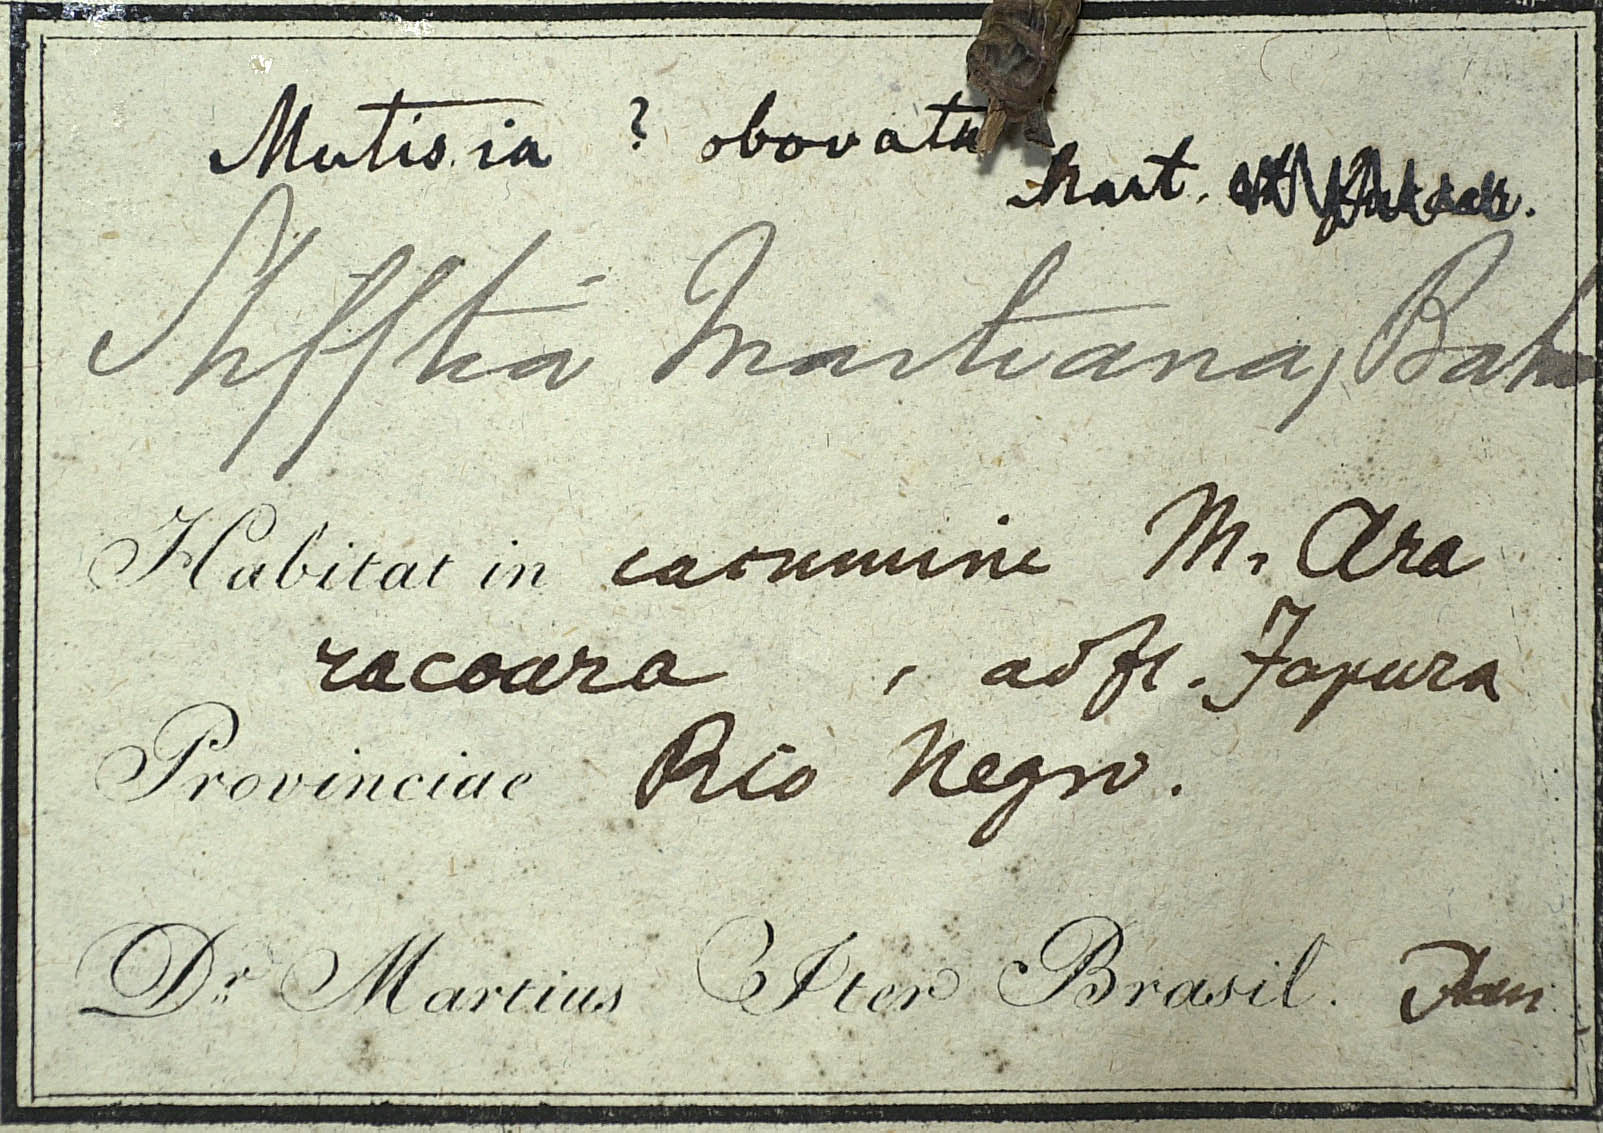 Mutisia ? obovata
Mart.
Stifftia Martiana, Bak
Habitat in cacumine M. Ara
racoara , ad fl. Japura
Provinciae Rio Negro.
Dr. Martius Iter Brasil.